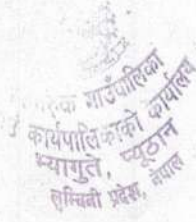 गाउँपालिका
कार्यपालिकाको कार्यालय
म्यागुते, प्यूठान
लुम्बिनी प्रदेश, नेपाल